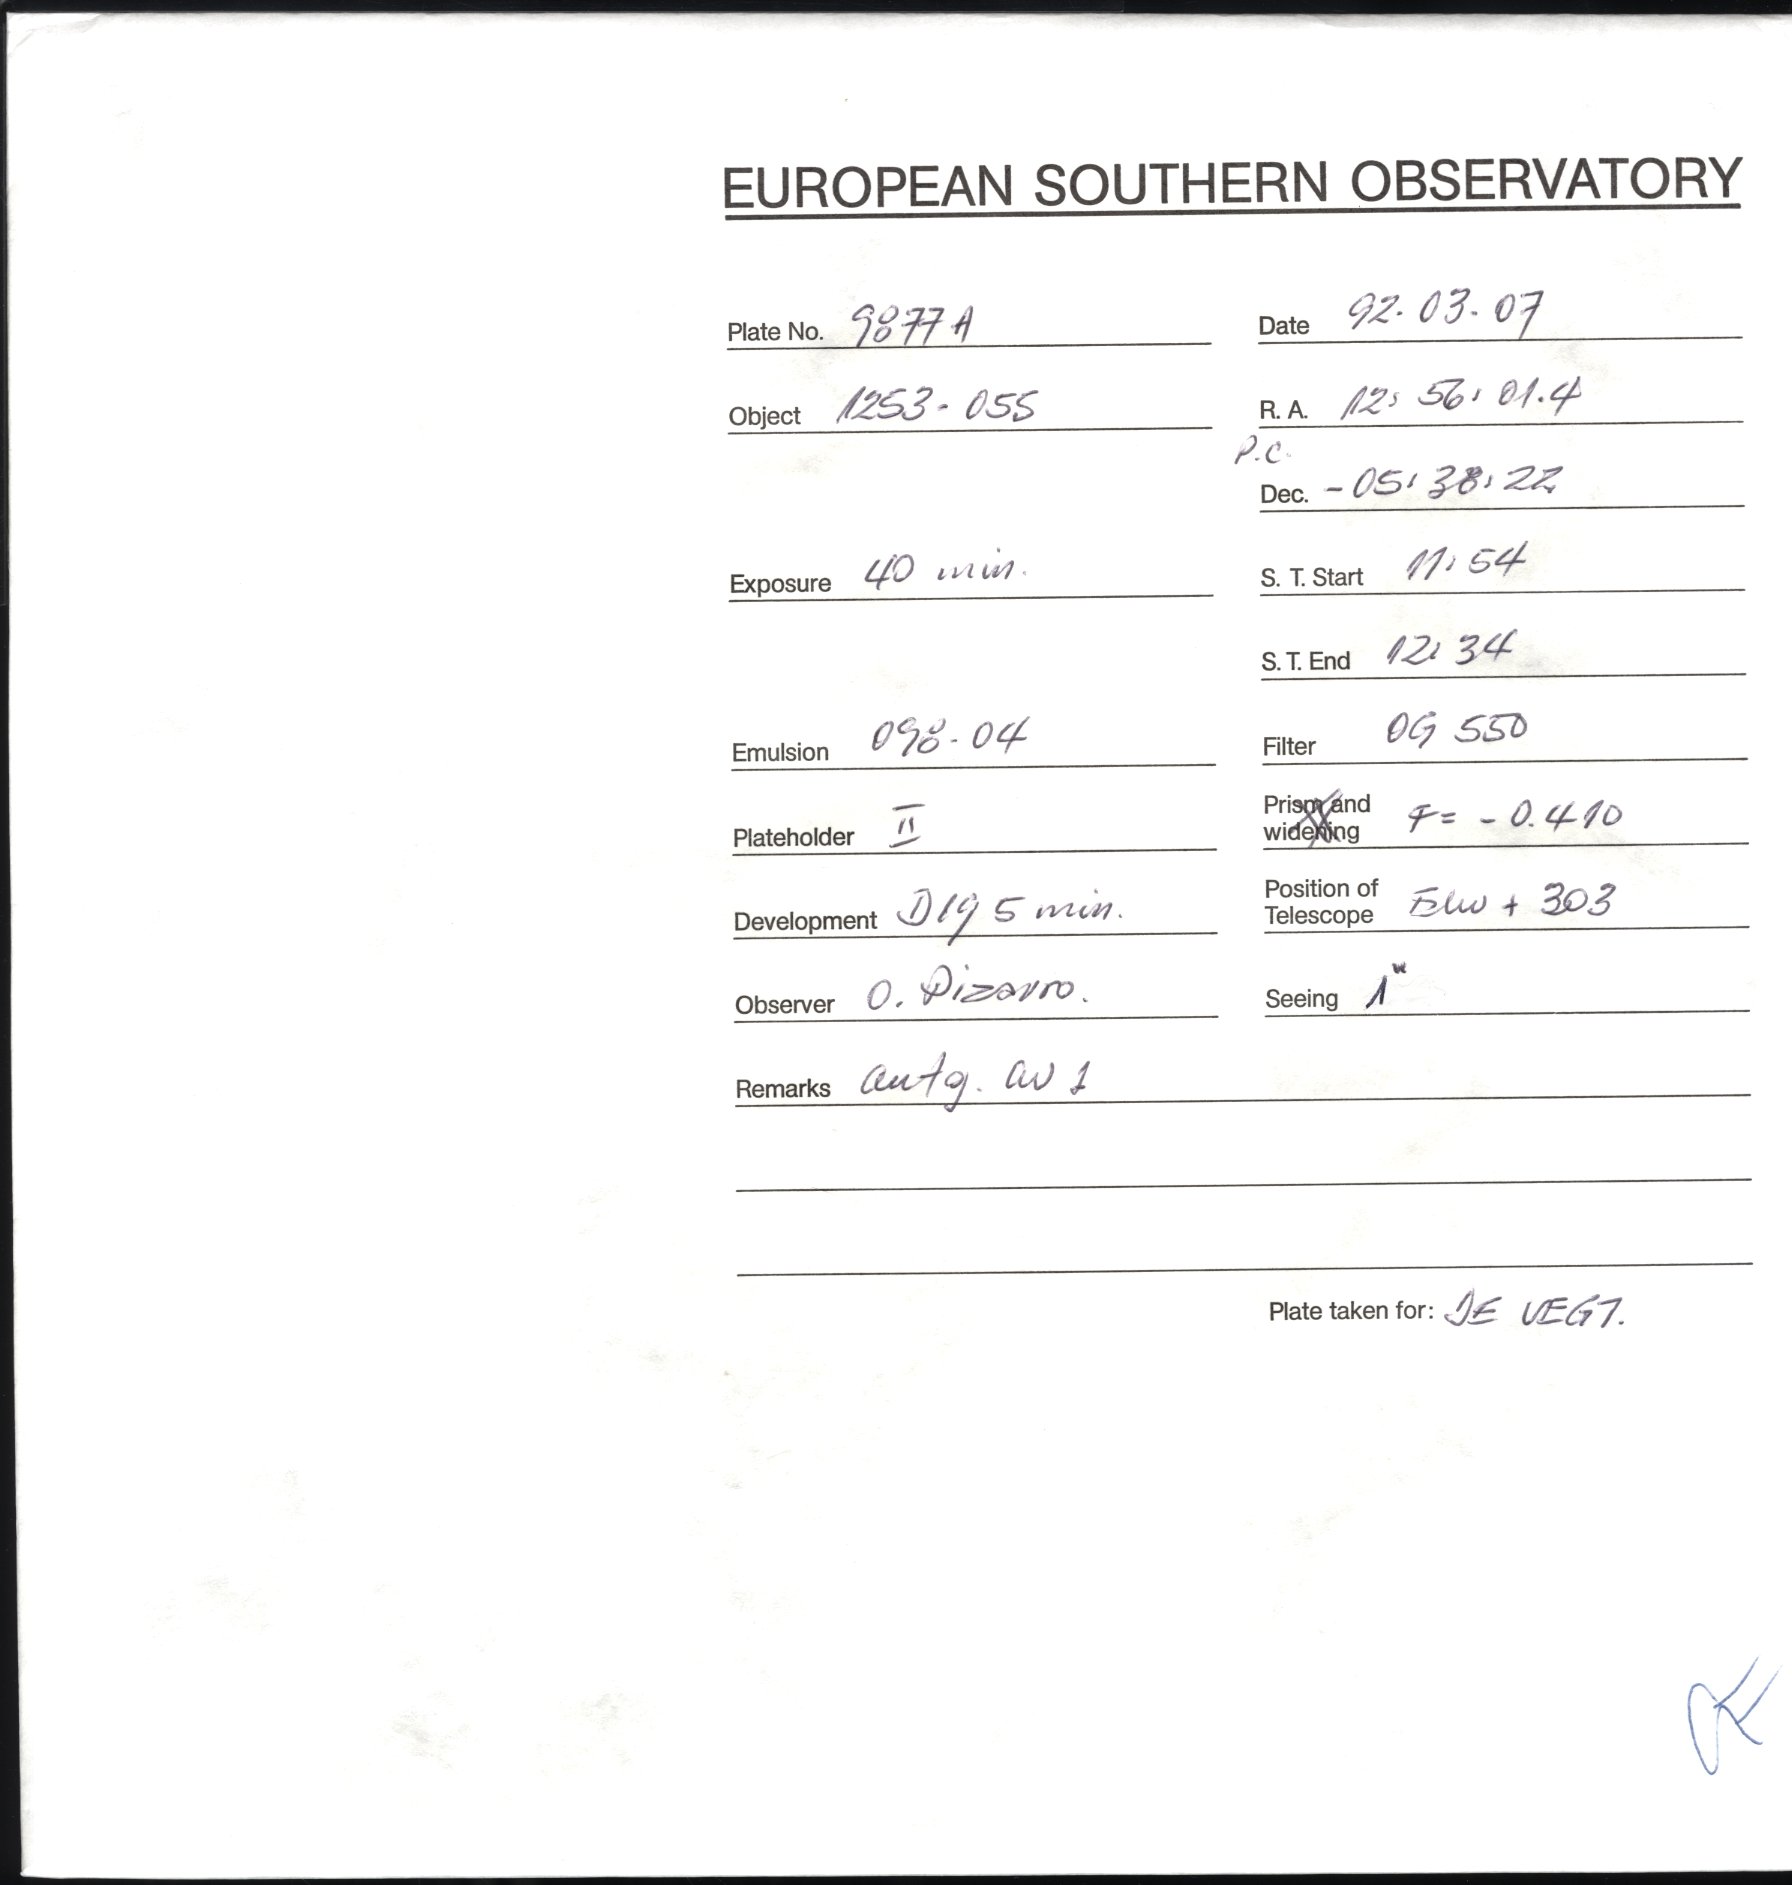 EUROPEAN SOUTHERN OBSERVATORY
Plate No. 9877A
Date 92.03.07
Object 1253-055
R. A. 12: 56: 01.4
P.C.
Dec. -05: 38: 22
Exposure 40 min.
S. T. Start 11: 54
S. T. End 12: 34
Emulsion 098-04
Filter OG 550
Plateholder II
Prism and widening F= -0.410
Development D19 5 min.
Position of Telescope + 303
Observer O. Pizarro.
Seeing 1"
Remarks autg. 1
Plate taken for: DE VEGT.